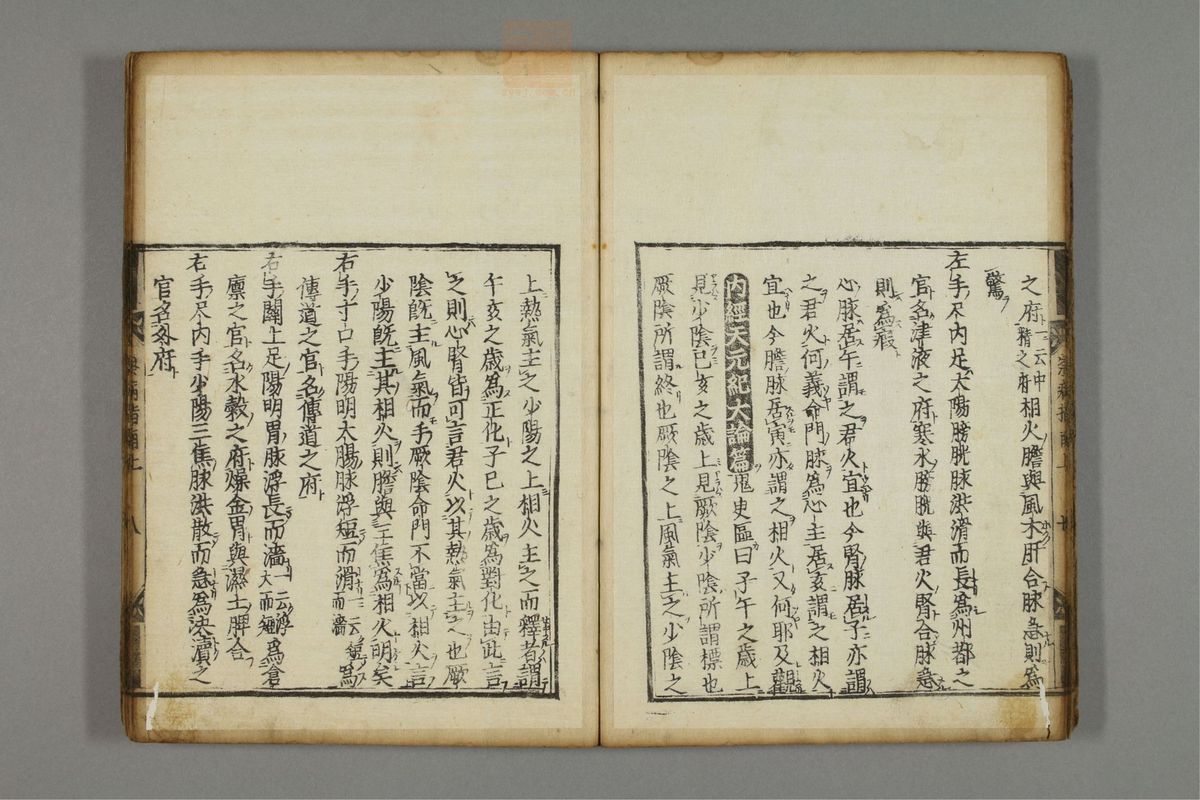 之府一云中精之府相火膽與風木肝合脉急則為
驚
左手尺内足太陽膀胱脉洪滑而長為州都之
官名津液之府寒水膀胱與君火腎合脉急
則為瘕
心脉居午謂之君火宜也今腎脉居子亦謂
之君火何義命門脉為心主居亥謂之相火
宜也今膽脉居寅亦謂之相火又何耶及觀
内經天元紀大論篇鬼臾區曰子午之歳上
見少陰巳亥之歳上見厥陰少陰所謂標也
厥陰所謂終也厥陰之上風氣主之少陰之
上熱氣主之少陽之上相火主之而釋者謂
午亥之歳為正化子巳之歳為對化由此言
之則心腎皆可言君火以其熱氣主之也厥
陰既主風氣而手厥陰命門不當以相火言
少陽既主其相火則膽與三焦為相火明矣
右手寸口手陽明大腸脉浮短而滑一云短而濇為
傳道之官名傳道之府
右手關上足陽明胃脉浮長而濇一云浮大而短為倉
廩之官名水穀之府燥金胃與濕土脾合
右手尺内手少陽三焦脉洪散而急為决瀆之
官名外府